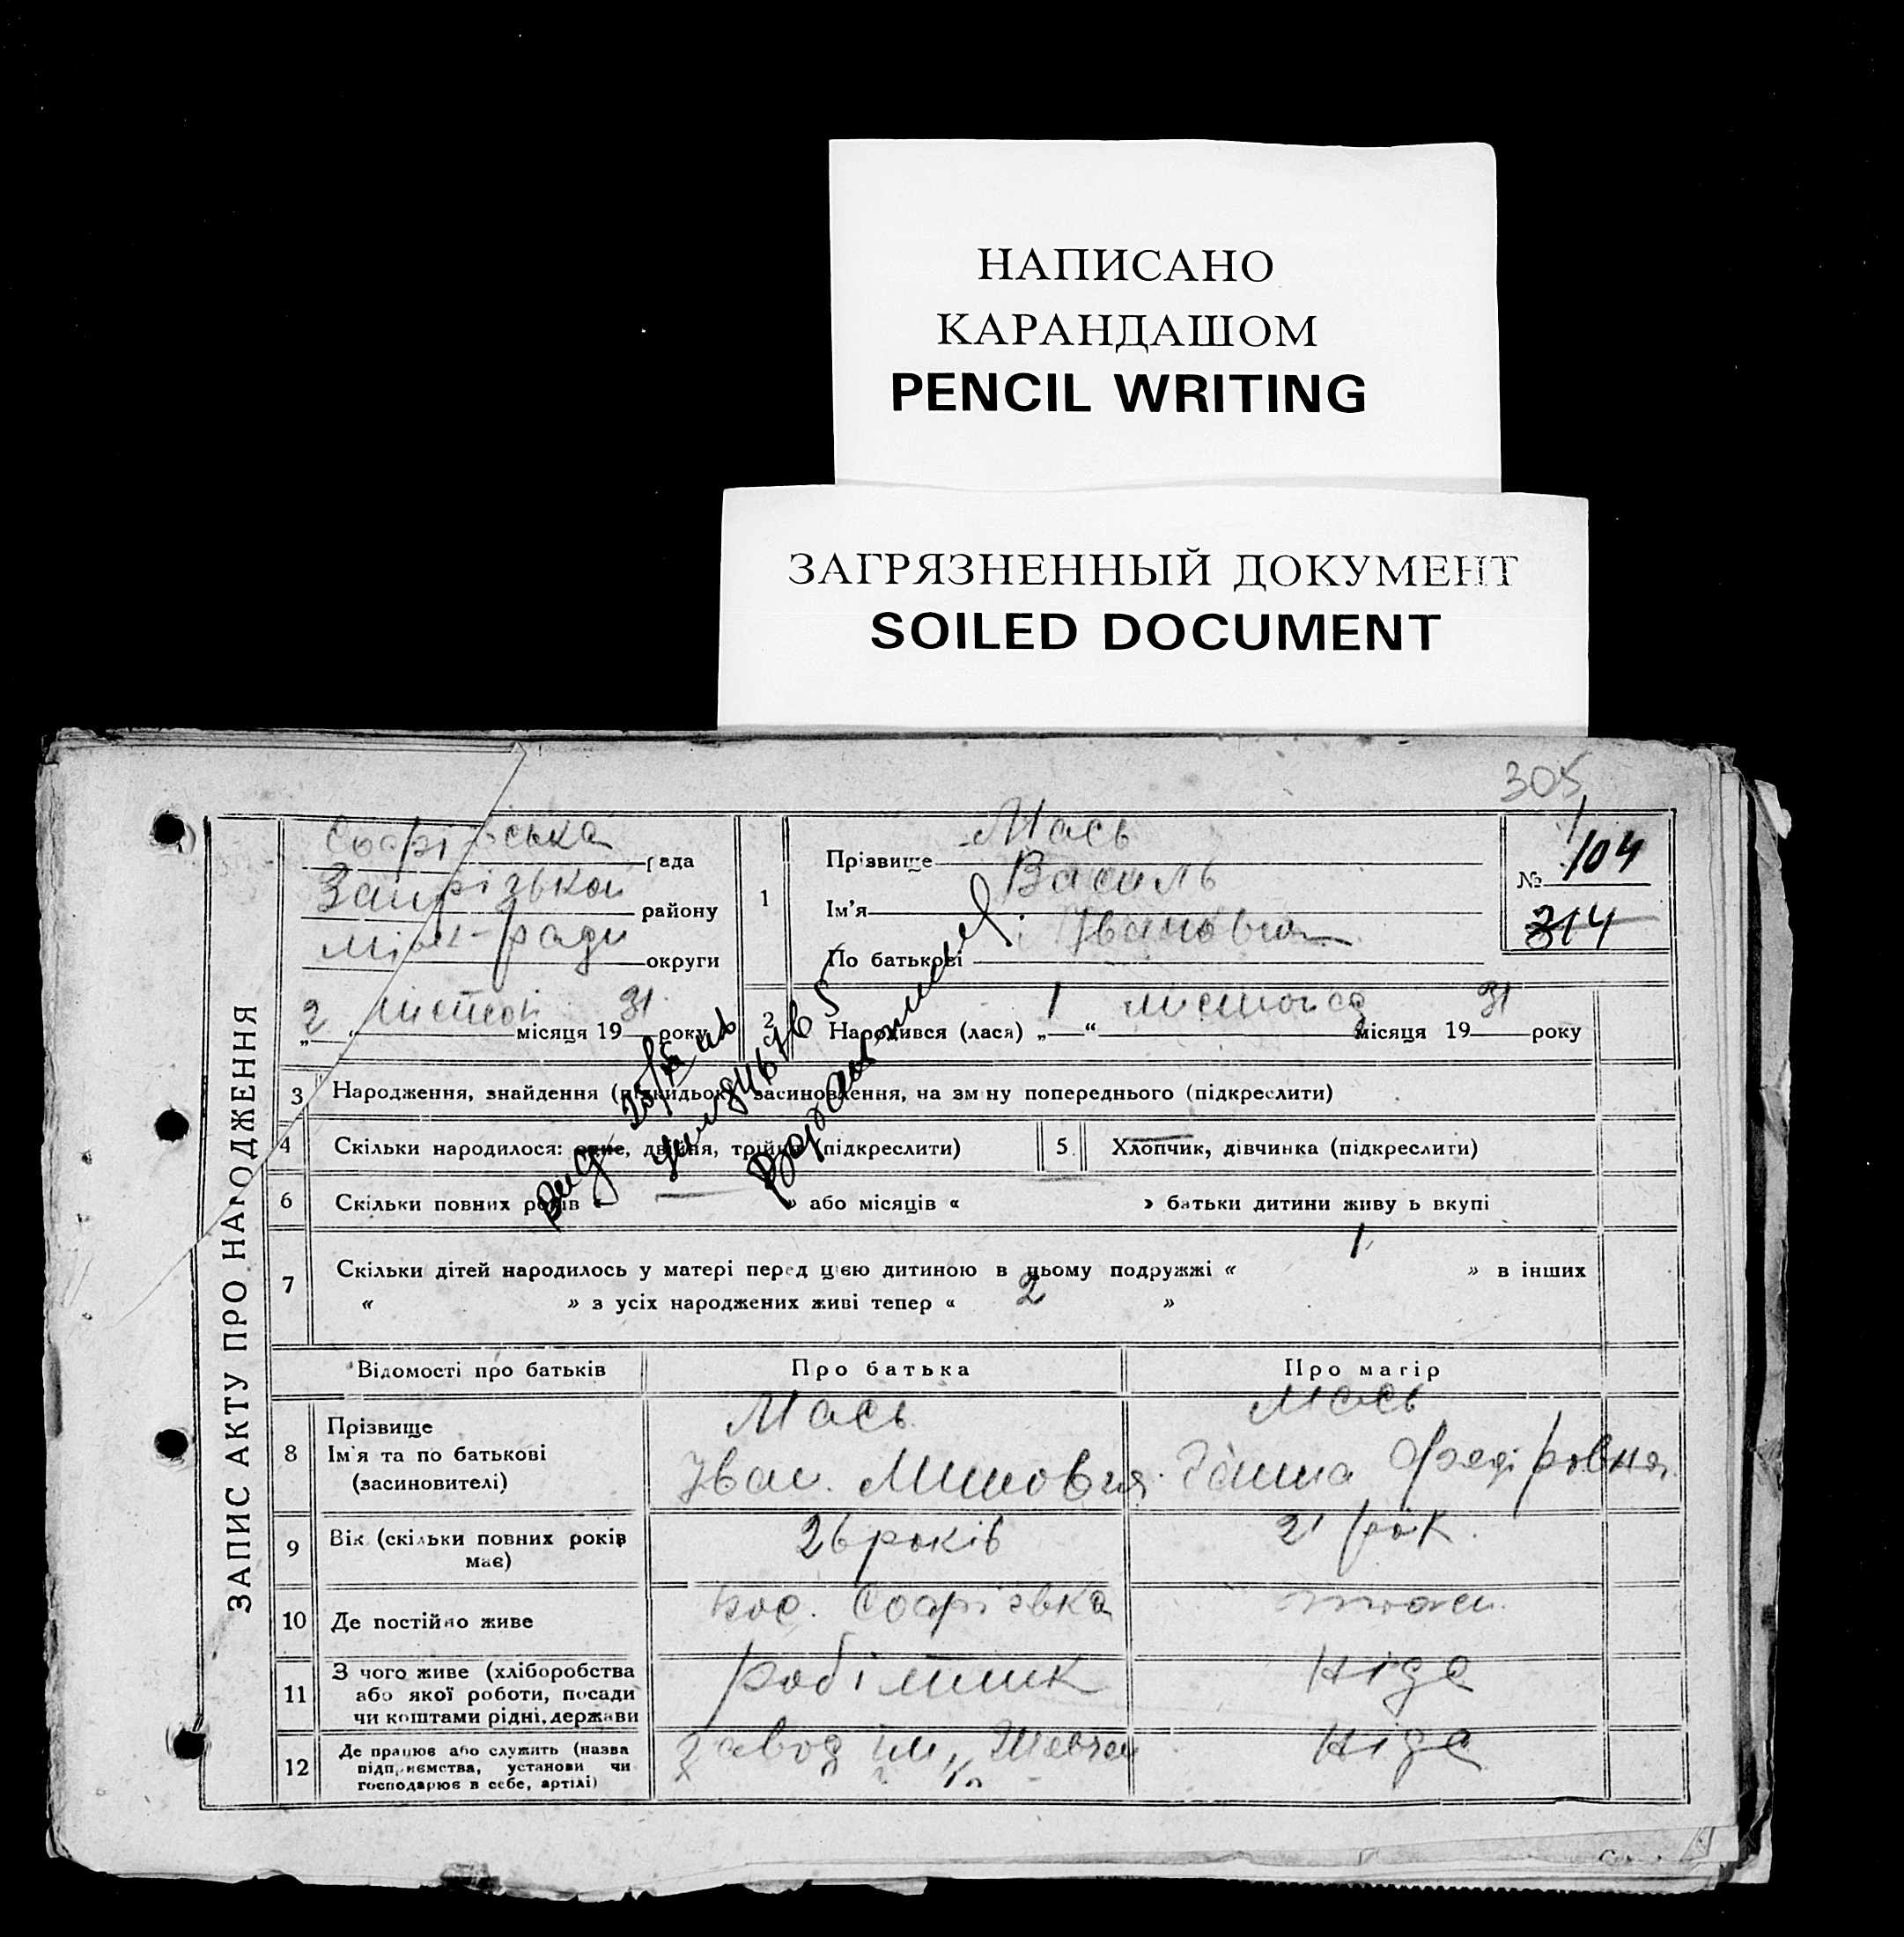 НАПИСАНО
КАРАНДАШОМ
PENCIL WRITING
ЗАГРЯЗНЕННЫЙ ДОКУМЕНТ
SOILED DOCUMENT
305
ЗАПИС АКТУ ПРО НАРОДЖЕННЯ
Софіївська рада
району
округи
„2“ місяця 1931 року
1
Прізвище Мась
Ім'я Василь
По батькові Іванович
№ 104
314
2
Народився (лася) „1“ листопада місяця 1931 року
3 Народження, знайдення (підкидьок) засиновлення, на зміну попереднього (підкреслити)
4 Скільки народилося: одне, двійня, трійня (підкреслити)
5 Хлопчик, дівчинка (підкреслити)
6 Скільки повних років « — » або місяців « » батьки дитини живуть вкупі
7 Скільки дітей народилось у матері перед цією дитиною в цьому подружжі « 1 » в інших
« » з усіх народжених живі тепер « 2 »
Відомості про батьків Про батька Про матір
8 Прізвище Мась Мась
Ім'я та по батькові Іван Ганна Федіровна
(засновителі)
9 Вік (скільки повних років має) 26 років 21 рік
10 Де постійно живе пос. Софіївка
11 З чого живе (хліборобства
або якої роботи, посади
чи коштами рідні, держави
робітник
12 Де працює або служить (назва
підприємства, установи чи
господарює в себе, артілі)
завод ім.